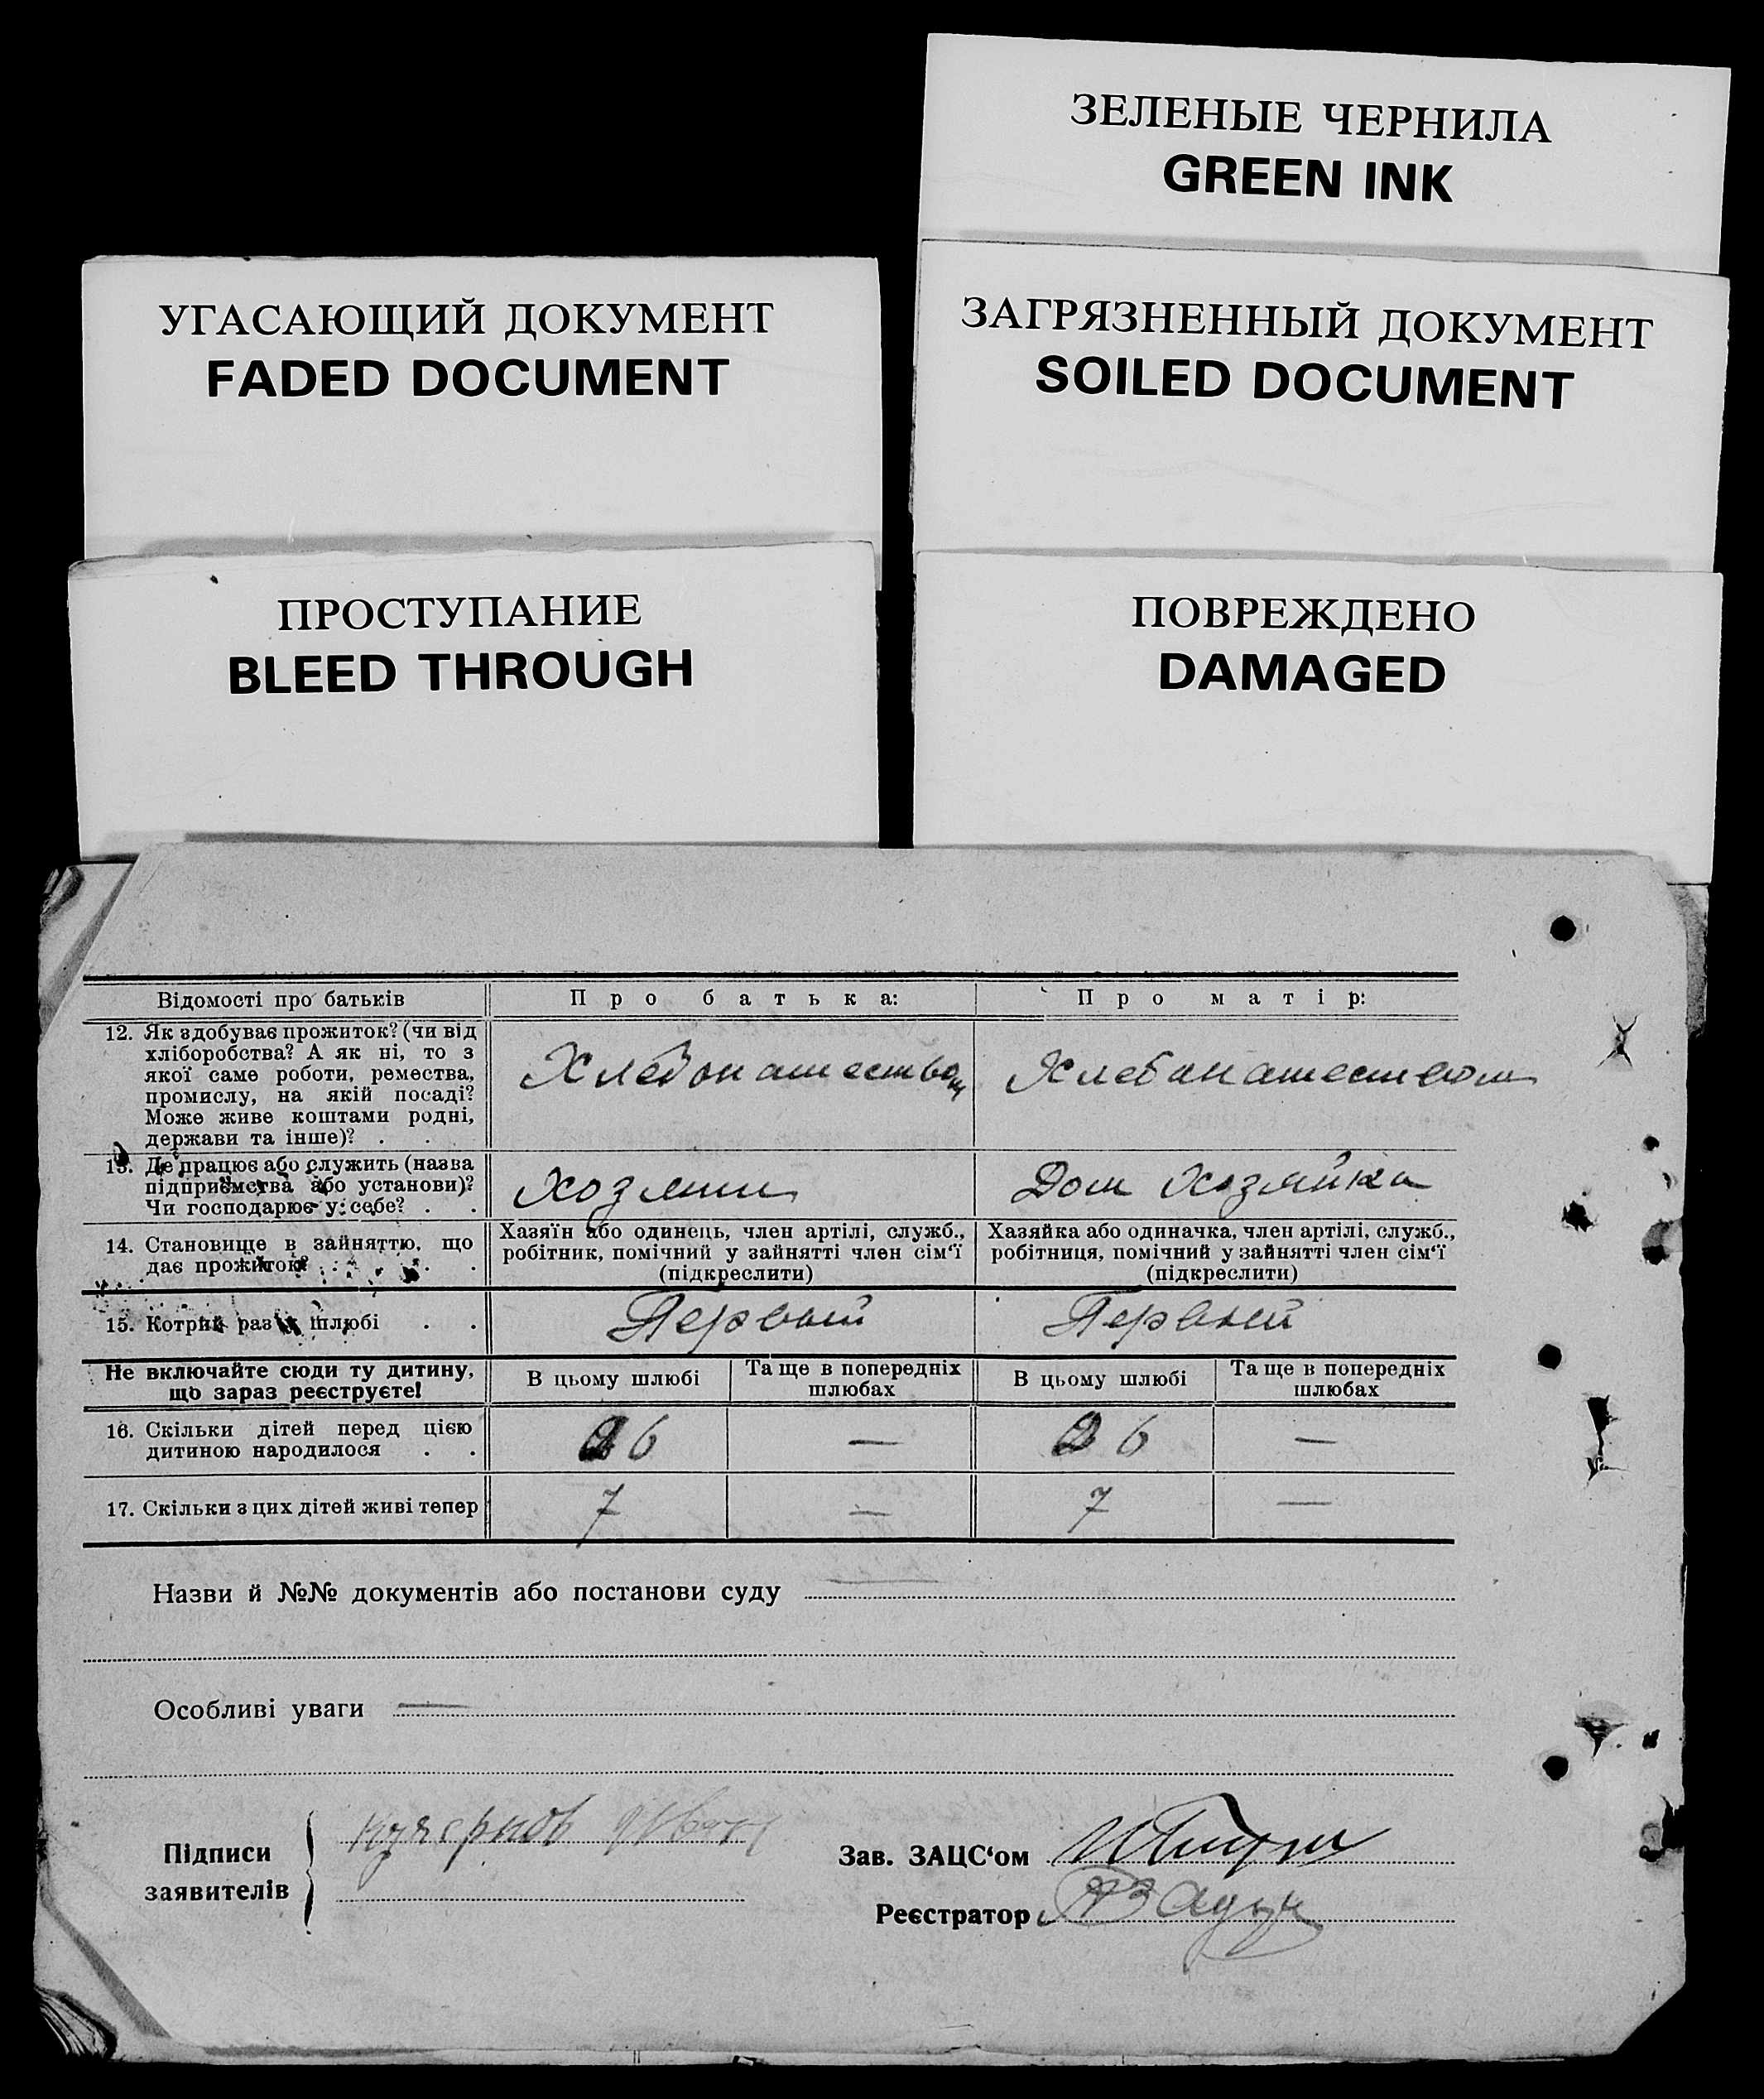 ЗЕЛЕНЫЕ ЧЕРНИЛА
GREEN INK
УГАСАЮЩИЙ ДОКУМЕНТ
FADED DOCUMENT
ЗАГРЯЗНЕННЫЙ ДОКУМЕНТ
SOILED DOCUMENT
ПРОСТУПАНИЕ
BLEED THROUGH
ПОВРЕЖДЕНО
DAMAGED
Відомості про батьків
Про батька:
Про матір:
12. Як здобуває прожиток? (чи від
хліборобства? А як ні, то з
якої саме роботи, ремества,
промислу, на якій посаді?
Може живе коштами родні,
держави та інше)? . .
Хлебопашеством
Хлебопашеством
13. Де працює або служить (назва
підприємства або установи)?
Чи господарює у себе? . .
Хозяин
Дом Хозяйка
14. Становище в зайняттю, що
дає прожиток? . . . .
Хазяїн або одинець, член артілі, служб.,
робітник, помічний у зайнятті член сім'ї
(підкреслити)
Хазяйка або одиначка, член артілі, служб.,
робітниця, помічний у зайнятті член сім'ї
(підкреслити)
15. Котрий раз у шлюбі . .
Первый
Первый
Не включайте сюди ту дитину,
що зараз реєструєте!
В цьому шлюбі
Та ще в попередніх
шлюбах
В цьому шлюбі
Та ще в попередніх
шлюбах
16. Скільки дітей перед цією
дитиною народилося . .
6 —
6 —
17. Скільки з цих дітей живі тепер
7 —
7 —
Назви й №№ документів або постанови суду —
Особливі уваги —
Підписи
заявителів
Зав. ЗАЦС'ом
Реєстратор